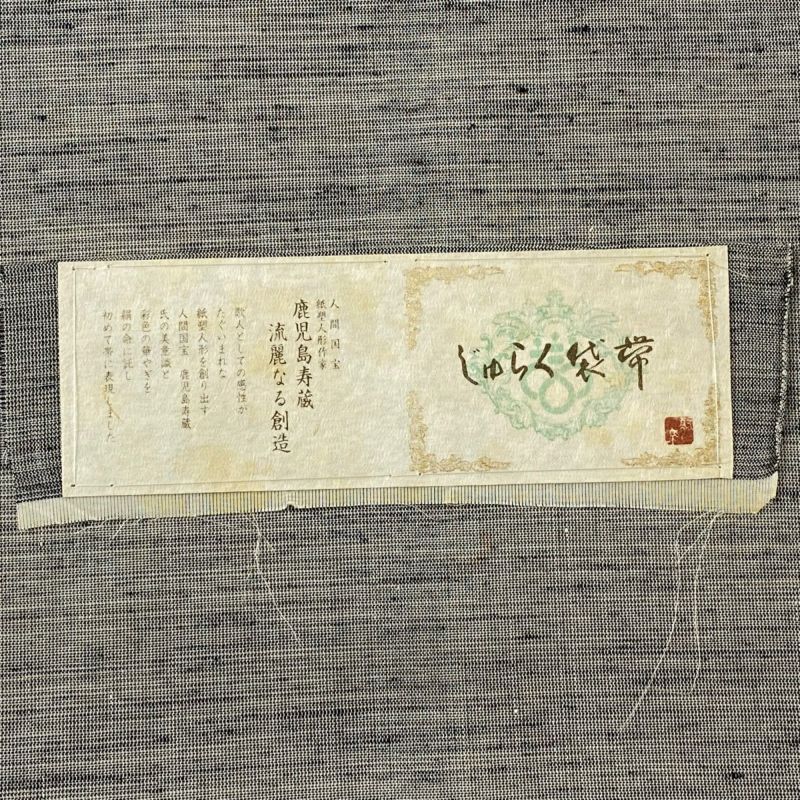 じゅらく袋帯
人間国宝
紙塑人形作家
鹿児島寿蔵
流麗なる創造
歌人としての感性が
たぐいまれな
紙塑人形を創り出す
人間国宝 鹿児島寿蔵
氏の美意識と
彩色の華やぎを
絹の命に託し
初めて帯に表現しました